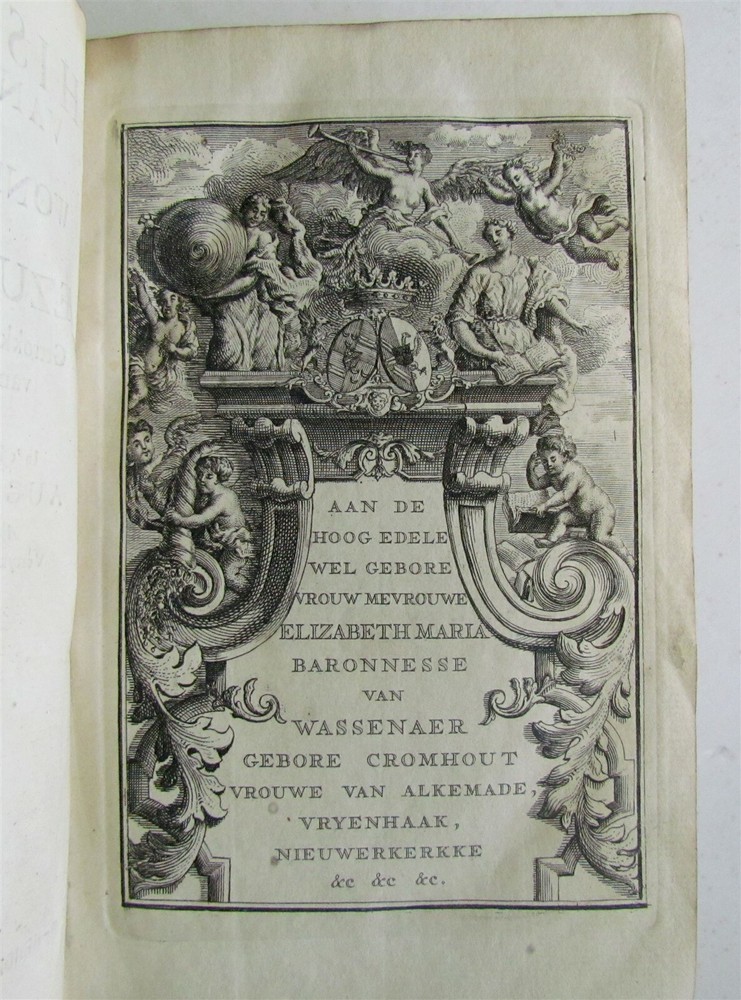 HIS
VAN
WON
EZU
AUG
AAN DE
HOOG EDELE
WEL GEBORE
VROUW MEVROUWE
ELIZABETH MARIA
BARONNESSE
VAN
WASSENAER
GEBORE CROMHOUT
VROUWE VAN ALKEMADE,
VRYENHAAK,
NIEUWERKERKKE
&c &c &c.